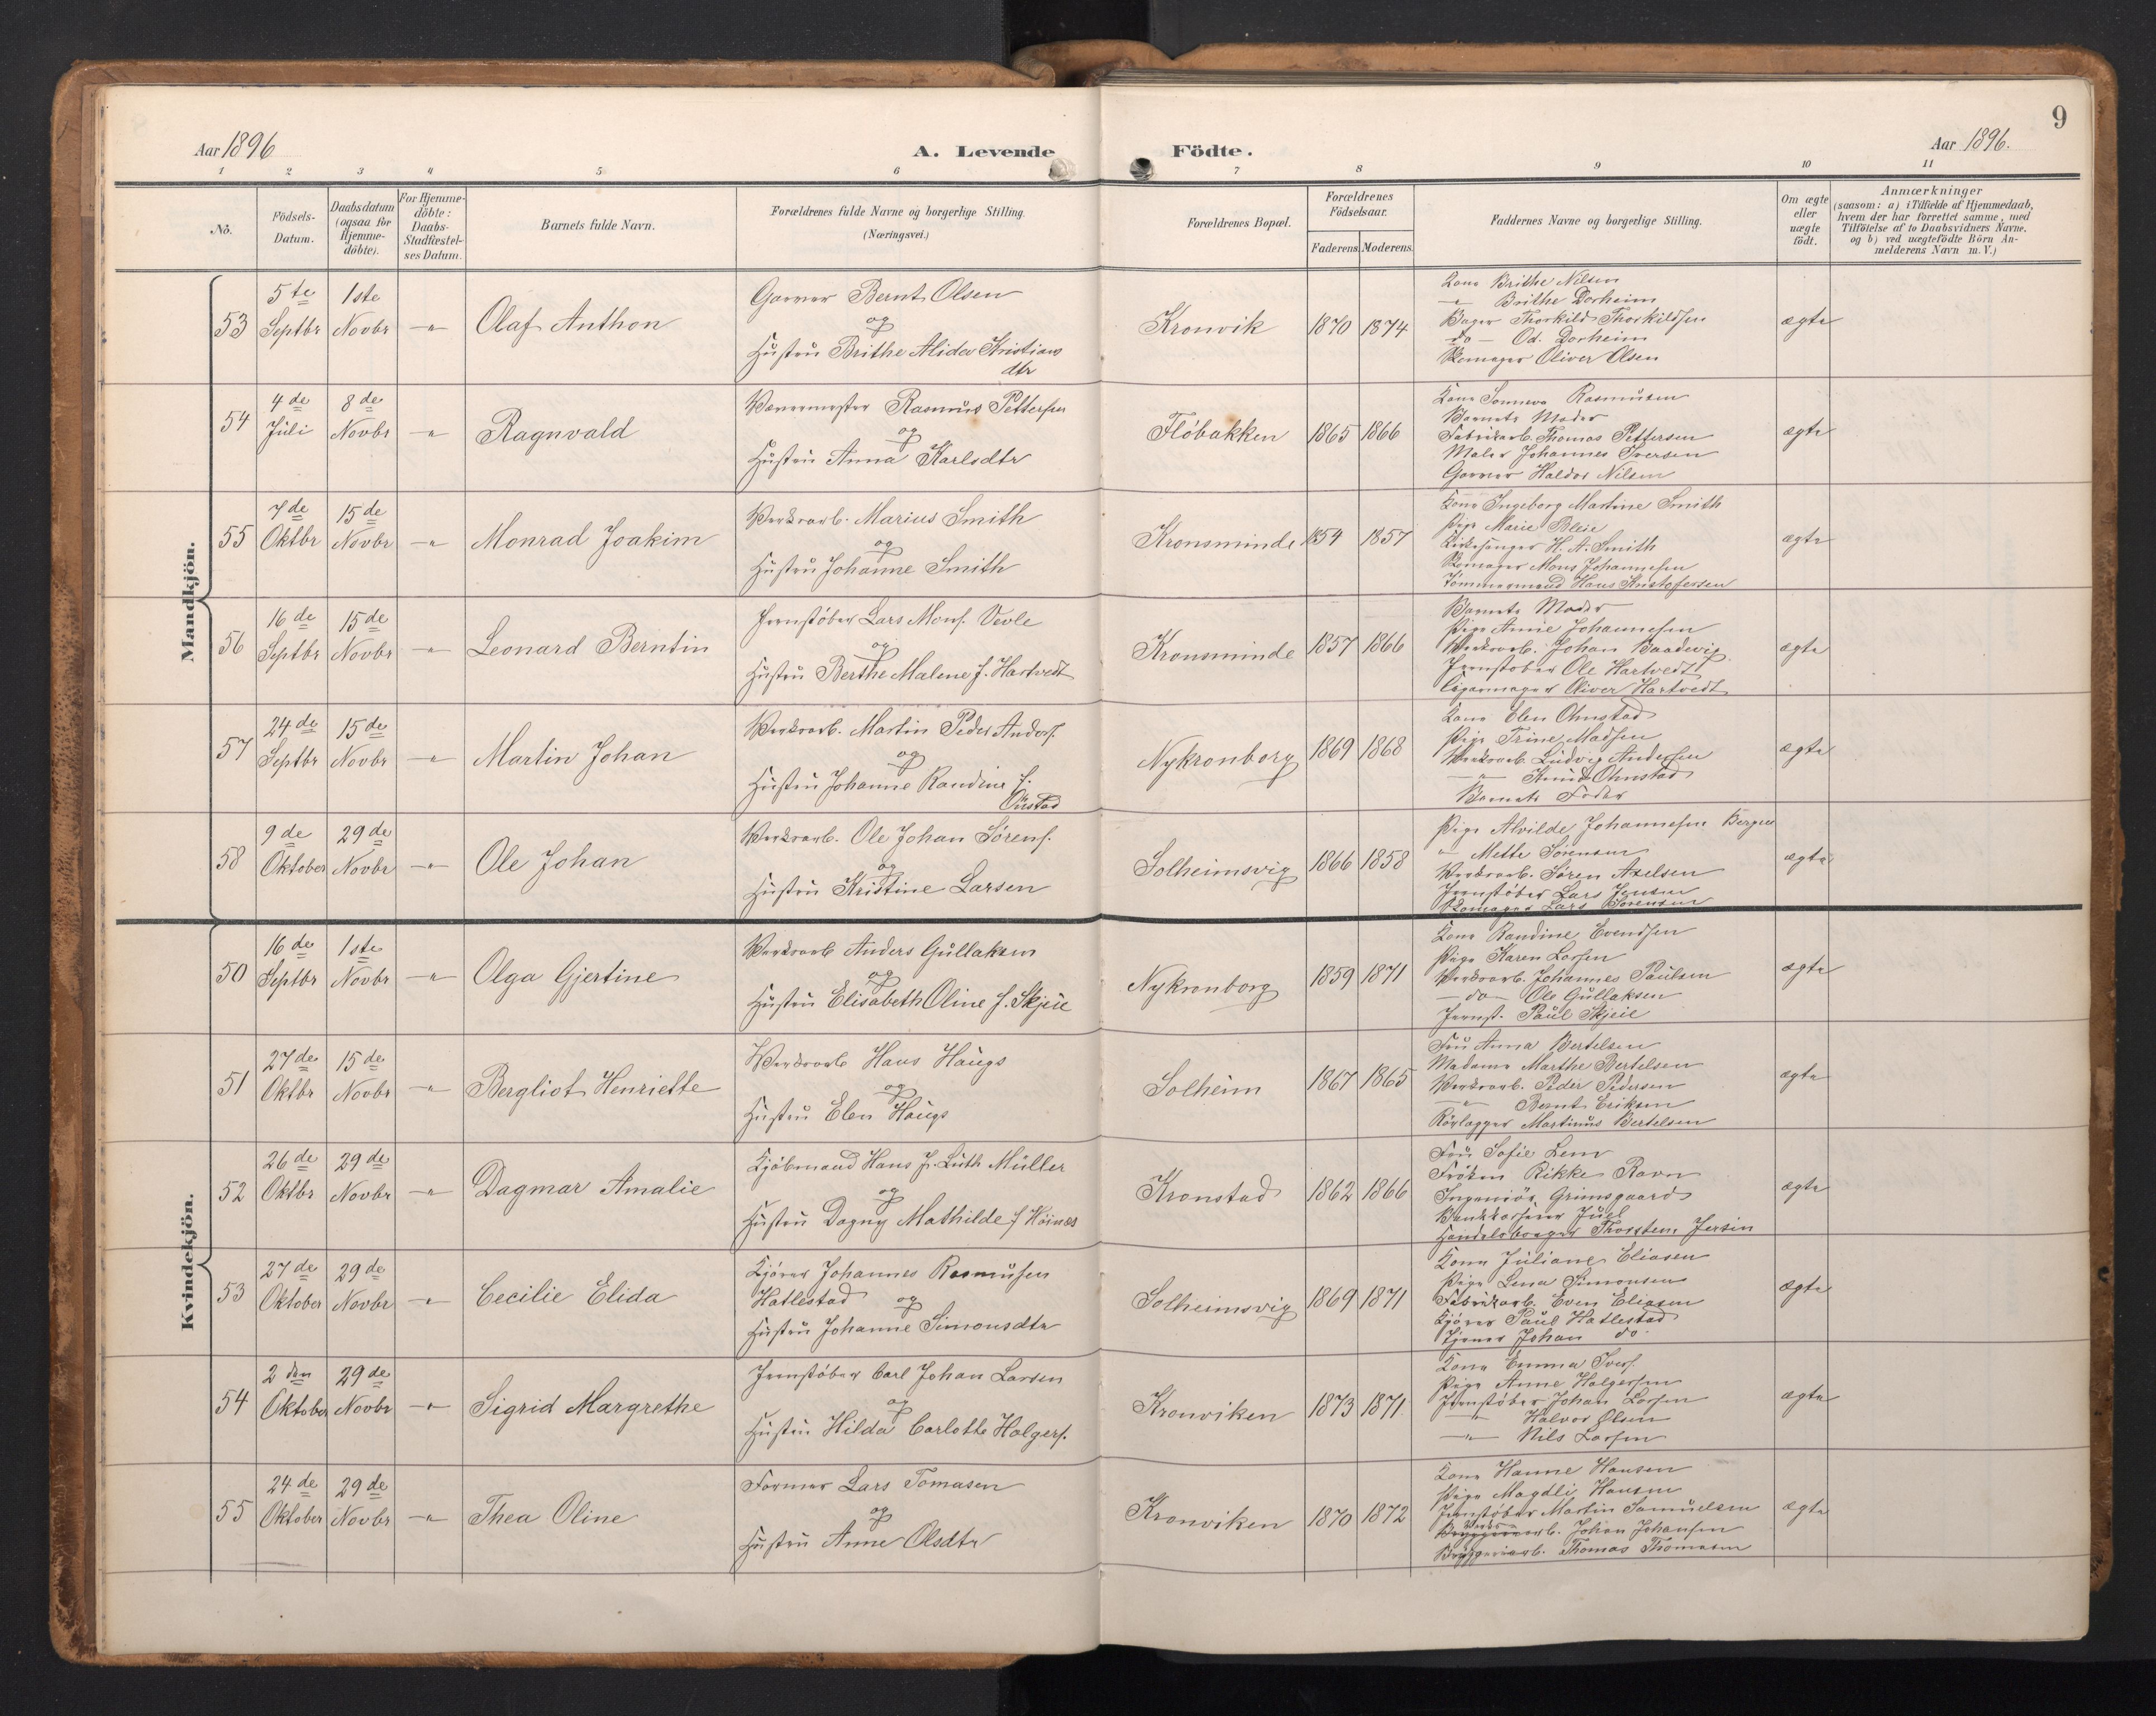 9
Aar 1896
A. Levende
Födte.
Aar 1896.
1 2 3 4 5 6 7 8 9 10 11
Nö.
Födsels-Datum.
Daabsdatum (ogsaa for Hjemme-döbte).
For Hjemme-döbte: Daabs-Stadfæstel-ses Datum.
Barnets fulde Navn.
Forældrenes fulde Navne og borgerlige Stilling.
(Næringsvei.)
Forældrenes Bopæl.
Forældrenes Födselsaar.
Faderens. Moderens.
Faddernes Navne og borgerlige Stilling.
Om ægte eller uægte födt.
Anmærkninger
(saasom: a) i Tilfælde af Hjemmedaab,
hvem der har forrettet samme, med
Tilföielse af to Daabsvidners Navne,
og b) ved uægtefödte Börn An-
melderens Navn m. V.)
Mandkjön.
53 5te Septbr 1ste Novbr —"— Olaf Anthon
Garver Bernt Olsen
og
Hustru Brithe Alida Kristians
dtr
Kronvik 1870 1874
Kone Brithe Nilsen
—"— Brithe Dorheim
Bager Thorkild Thorkildsen
do — Od. Dorheim
Skomager Oliver Olsen
ægte
54 4de Juli 8de Novbr —"— Ragnvald
Vævermester Rasmus Pettersen
og
Hustru Anna Karlsdtr
Flöbakken 1865 1866
Kone Sonneva Rasmusen
Barnets Moder
Fabrikarb. Thomas Pettersen
Maler Johannes Iversen
Garver Haldor Nilsen
ægte
55 7de Oktbr 15de Novbr —"— Monrad Joakim
Værksarb. Marius Smith
og
Hustru Johanne Smith
Kronsminde 1854 1857
Kone Ingeborg Martine Smith
Pige Marie Bleie
Kirkesanger H. A. Smith
Skomager Mons Johannesen
Tömmermand Hans Kristofersen
ægte
56 16de Septbr 15de Novbr —"— Leonard Berntin
Jernstöber Lars Mons. Vevle
og
Hustru Berthe Malene f. Hartvedt
Kronsminde 1857 1866
Barnets Moder
Pige Annie Johannesen
Værksarb. Johan Baadevig
Jernstöber Ole Hartvedt
Cigarmager Oliver Hartvedt
ægte
57 24de Septbr 15de Novbr —"— Martin Johan
Værksarb. Martin Peder Anders.
og
Hustru Johanne Randine f.
Onstad
Nykronborg 1869 1868
Kone Elen Ohnstad
Pige Trine Madsen
Værksarb. Ludvig Andersen
—"— Knud Ohnstad
Barnets Fader
ægte
58 9de Oktober 29de Novbr —"— Ole Johan
Værksarb. Ole Johan Sörens.
og
Hustru Kristine Larsen
Solheimsvig 1866 1858
Pige Alvilde Johannesen Bergen
" Mette Sörensen
Værksarb. Sören Axelsen
Jernstöber Lars Jensen
Skomager Lars Sörensen
ægte
Kvindekjön.
50 16de Septbr 1ste Novbr —"— Olga Gjertine
Værksarb Anders Gullaksen
og
Hustru Elisabeth Oline f. Skjeie
Nykronborg 1859 1871
Kone Randine Evendsen
Pige Karen Larsen
Værksarb. Johannes Paulsen
—do— Ole Gullaksen
Jernst. Paul Skjeie
ægte
51 27de Oktbr 15de Novbr —"— Bergliot Henriette
Værksarb Hans Haugs
og
Hustru Elen Haugs
Solheim 1867 1865
Fru Anna Bertelsen
Madame Marthe Bertelsen
Værksarb. Peder Pedersen
—"— Bernt Eriksen
Rörlægger Martinus Bertelsen
ægte
52 26de Oktbr 29de Novbr —"— Dagmar Amalie
Kjöbmand Hans J. Lüth Müller
og
Hustru Dagny Mathilde f Höines
Kronstad 1862 1866
Fru Sofie Lem
Fröken Rikke Ravn
Ingeniör Grimsgaard
Bankkasserer Juel
Handelsborger Thorstein Jersin
ægte
53 27de Oktober 29de Novbr —"— Cecilie Elida
Kjörer Johannes Rasmusen
Hatlestad og
Hustru Johanne Simonsdtr
Solheimsvig 1869 1871
Kone Juliane Eliasen
Pige Lena Simonsen
Fabrikarb. Even Eliasen
Kjörer Paul Hatlestad
Tjener Johan do.
ægte
54 2den Oktober 29de Novbr —"— Sigrid Margrethe
Jernstöber Carl Johan Larsen
og
Hustru Hilda Carlotte Holgers.
Kronviken 1873 1871
Kone Emma Ivers.
Pige Anne Holgersen
Jernstöber Johan Larsen
—"— Halvor Olsen
—"— Nils Larsen
ægte
55 24de Oktober 29de Novbr —"— Thea Oline
Former Lars Tomasen
og
Hustru Anne Olsdtr
Kronviken 1870 1872
Kone Hanne Hansen
Pige Magdli Hansen
Jernstöber Martin Samuelsen
Johan Johansen
Bryggeriarb. Thomas Thomasen
ægte